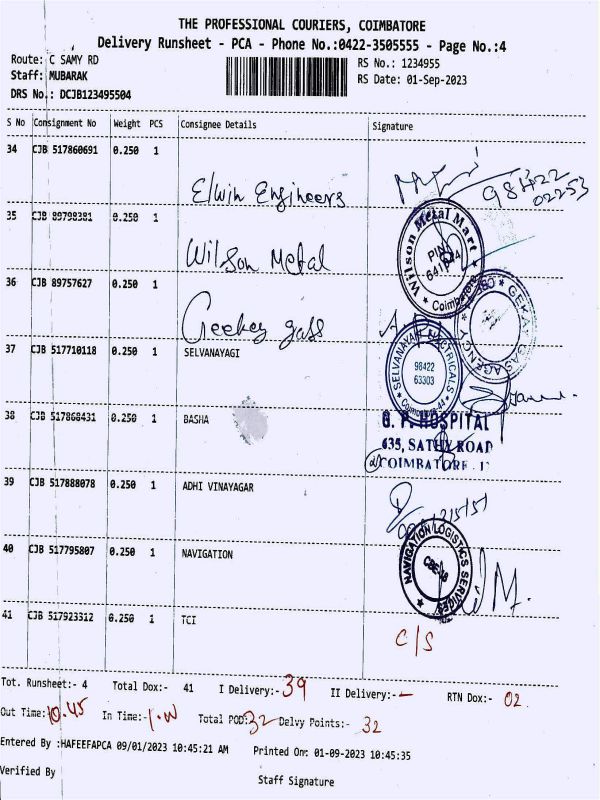 THE PROFESSIONAL COURIERS, COIMBATORE
Delivery Runsheet - PCA - Phone No.:0422-3505555 - Page No.:4
Route: C SAMY RD
RS No.: 1234955
Staff: MUBARAK
RS Date: 01-Sep-2023
DRS No.: DCJB123495504
S No Consignment No Weight PCS Consignee Details Signature
34 CJB 517860691 0.250 1
Elwin Engineers
98422
02253
35 CJB 89798381 0.250 1
Wilson Metal
Wilson Metal Mart
Coimbatore
36 CJB 89757627 0.250 1
37 CJB 517710118 0.250 1 SELVANAYAGI
98422
63303
38 CJB 517868431 0.250 1 BASHA
G. P. HOSPITAL
635, SATHY ROAD
COIMBATORE
39 CJB 517888078 0.250 1 ADHI VINAYAGAR
40 CJB 517795807 0.250 1 NAVIGATION
NAVIGATION LOGISTICS SERVICES
41 CJB 517923312 0.250 1 TCI
C/S
Tot. Runsheet:- 4 Total Dox:- 41 I Delivery:- 39 II Delivery:- - RTN Dox:- 02
Out Time: 10.45 In Time:- Total POD: 32 Delvy Points:- 32
Entered By :HAFEEFAPCA 09/01/2023 10:45:21 AM Printed On: 01-09-2023 10:45:35
Verified By
Staff Signature